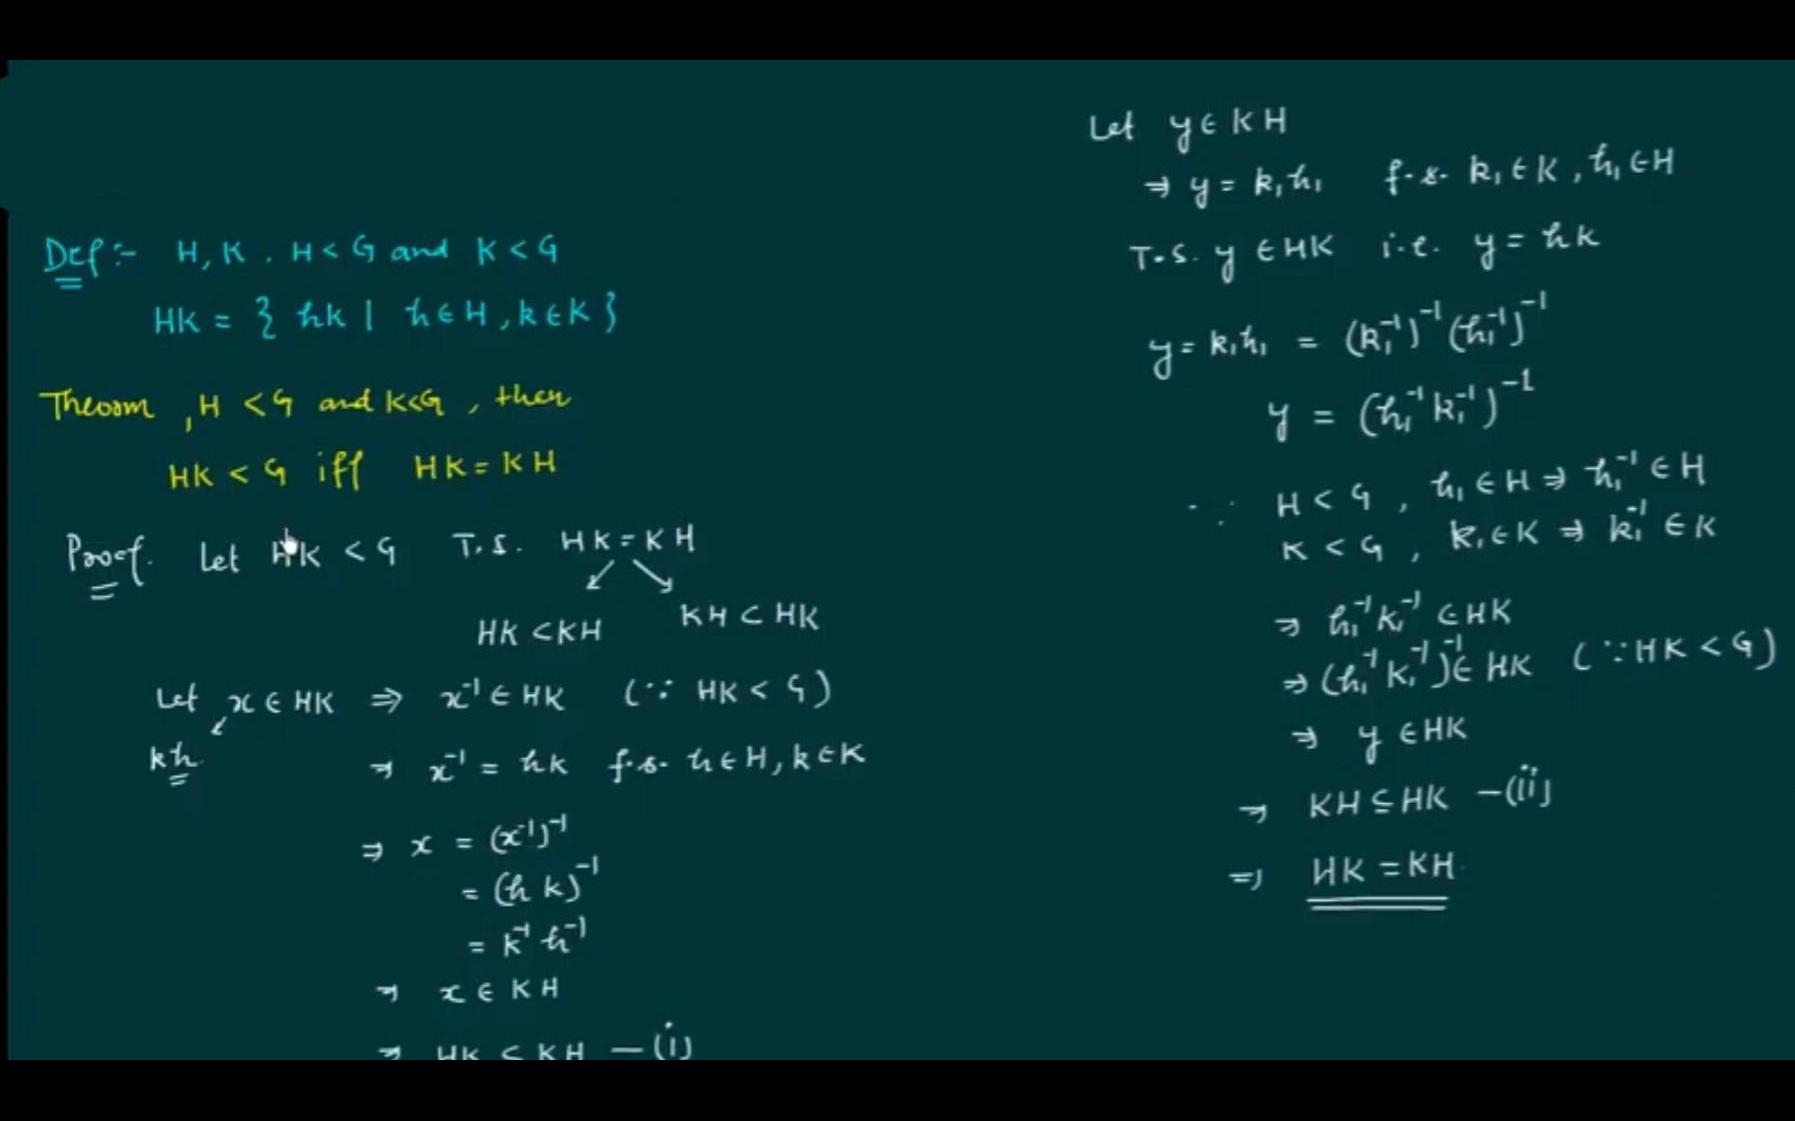 Def :- H, K . H < G and K < G
HK = { hk | h ∈ H, k ∈ K }
Theorm , H < G and K < G , then
HK < G iff HK = KH
Proof. Let HK < G T.S. HK = KH
HK < KH KH ⊂ HK
Let x ∈ HK ⇒ x⁻¹ ∈ HK (∵ HK < G)
kh
⇒ x⁻¹ = hk f.s. h ∈ H, k ∈ K
⇒ x = (x⁻¹)⁻¹
= (h k)⁻¹
= k⁻¹ h⁻¹
⇒ x ∈ KH
⇒ HK ⊂ KH — (i)
Let y ∈ KH
⇒ y = k₁h₁ f.s. k₁ ∈ K, h₁ ∈ H
T.S. y ∈ HK i.e. y = hk
y = k₁h₁ = (k₁⁻¹)⁻¹ (h₁⁻¹)⁻¹
y = (h₁⁻¹ k₁⁻¹)⁻¹
∵ H < G , h₁ ∈ H ⇒ h₁⁻¹ ∈ H
K < G , k₁ ∈ K ⇒ k₁⁻¹ ∈ K
⇒ h₁⁻¹ k₁⁻¹ ∈ HK
⇒ (h₁⁻¹ k₁⁻¹)⁻¹ ∈ HK (∵ HK < G)
⇒ y ∈ HK
⇒ KH ⊆ HK — (ii)
⇒ HK = KH